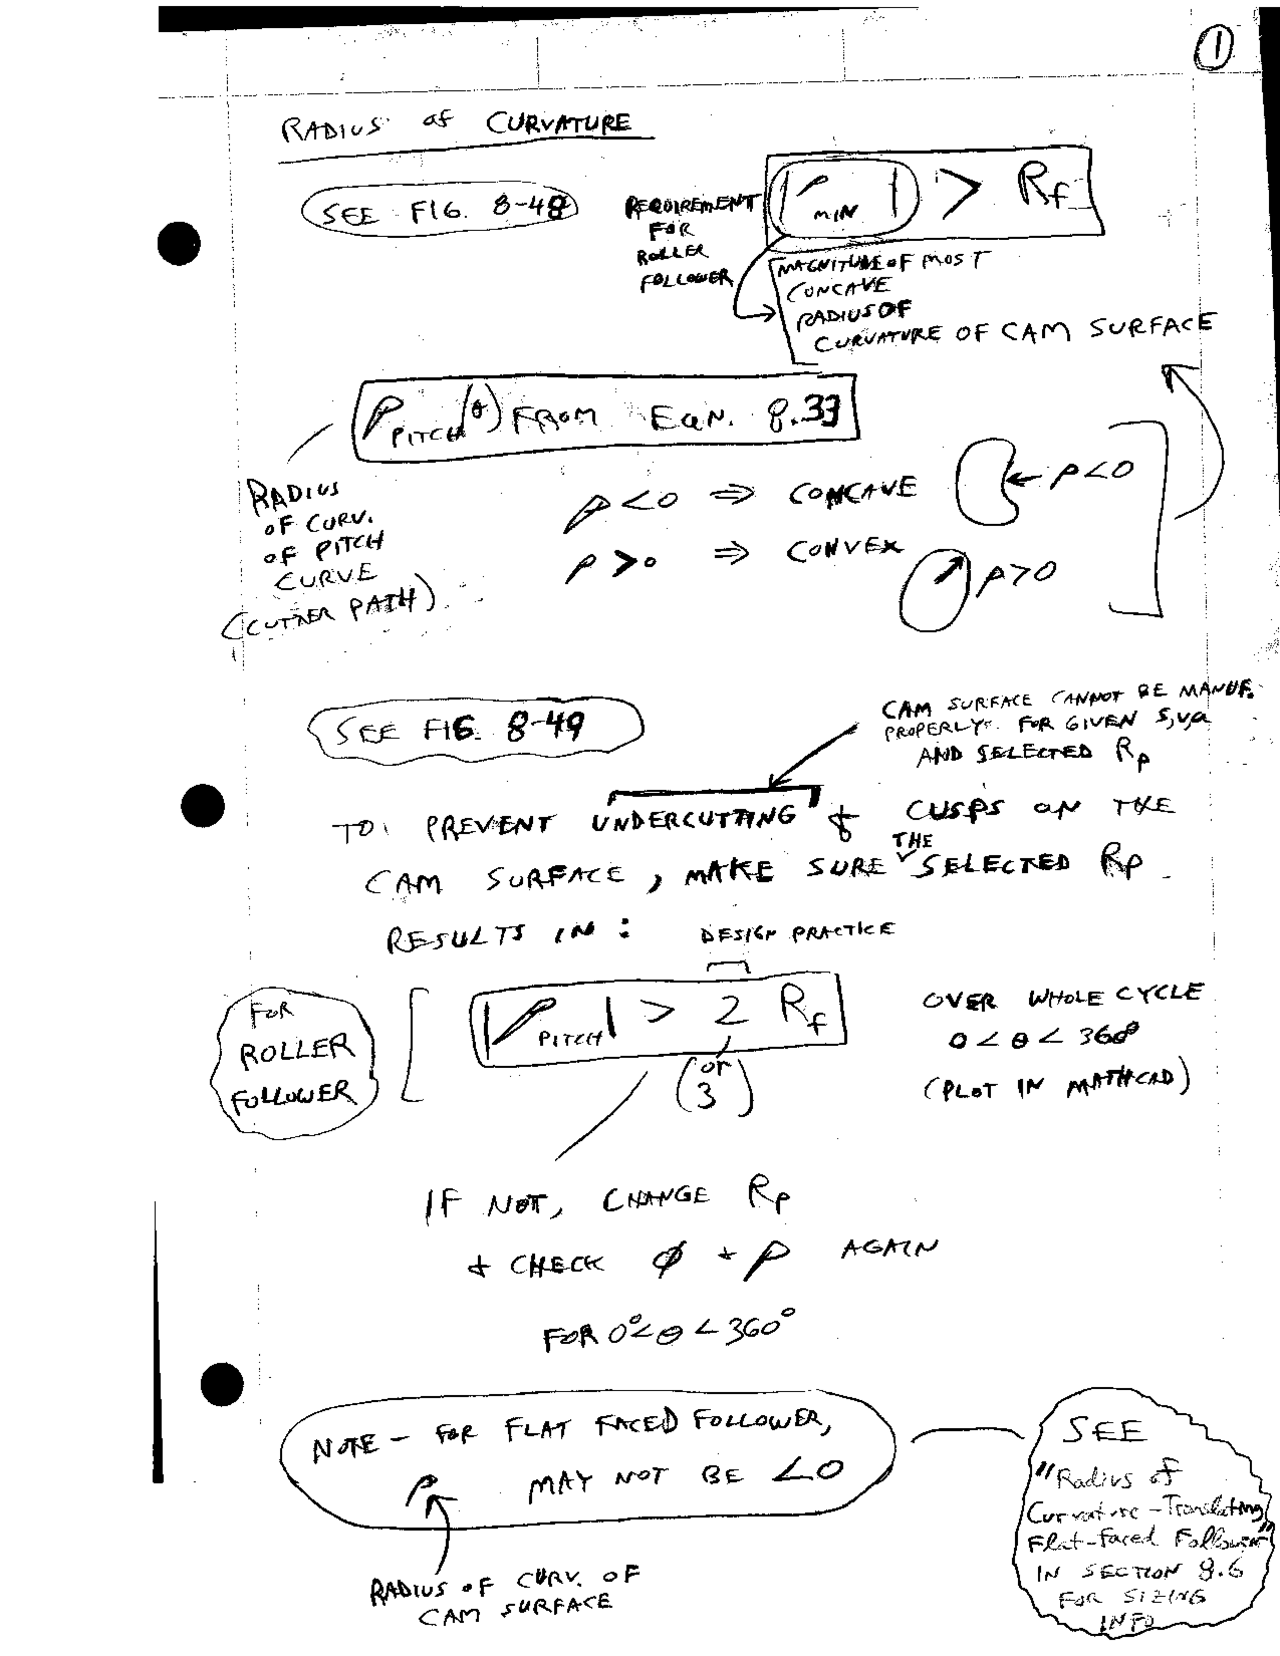 1
RADIUS of CURVATURE
SEE FIG. 8-48
REQUIREMENT
FOR
ROLLER
FOLLOWER
|ρMIN| > Rf
MAGNITUDE OF MOST
CONCAVE
RADIUS OF
CURVATURE OF CAM SURFACE
ρPITCH(θ) FROM EQN. 8.33
RADIUS
OF CURV.
OF PITCH
CURVE
(CUTTER PATH)
ρ<0 ⇒ CONCAVE
ρ<0
ρ>0 ⇒ CONVEX
ρ>0
SEE FIG. 8-49
CAM SURFACE CANNOT BE MANUF.
PROPERLY FOR GIVEN S,V,a
AND SELECTED Rp
TO PREVENT UNDERCUTTING & CUSPS ON THE
CAM SURFACE, MAKE SURE THE SELECTED Rp
RESULTS IN:
DESIGN PRACTICE
FOR
ROLLER
FOLLOWER
|ρPITCH| > 2 Rf
(or
3)
OVER WHOLE CYCLE
0 < θ < 360°
(PLOT IN MATHCAD)
IF NOT, CHANGE Rp
& CHECK φ + ρ AGAIN
FOR 0°<θ<360°
NOTE - FOR FLAT FACED FOLLOWER,
ρ MAY NOT BE <0
RADIUS OF CURV. OF
CAM SURFACE
SEE
"Radius of
Curvature-Translating
Flat-faced Follower"
IN SECTION 8.6
FOR SIZING
INFO